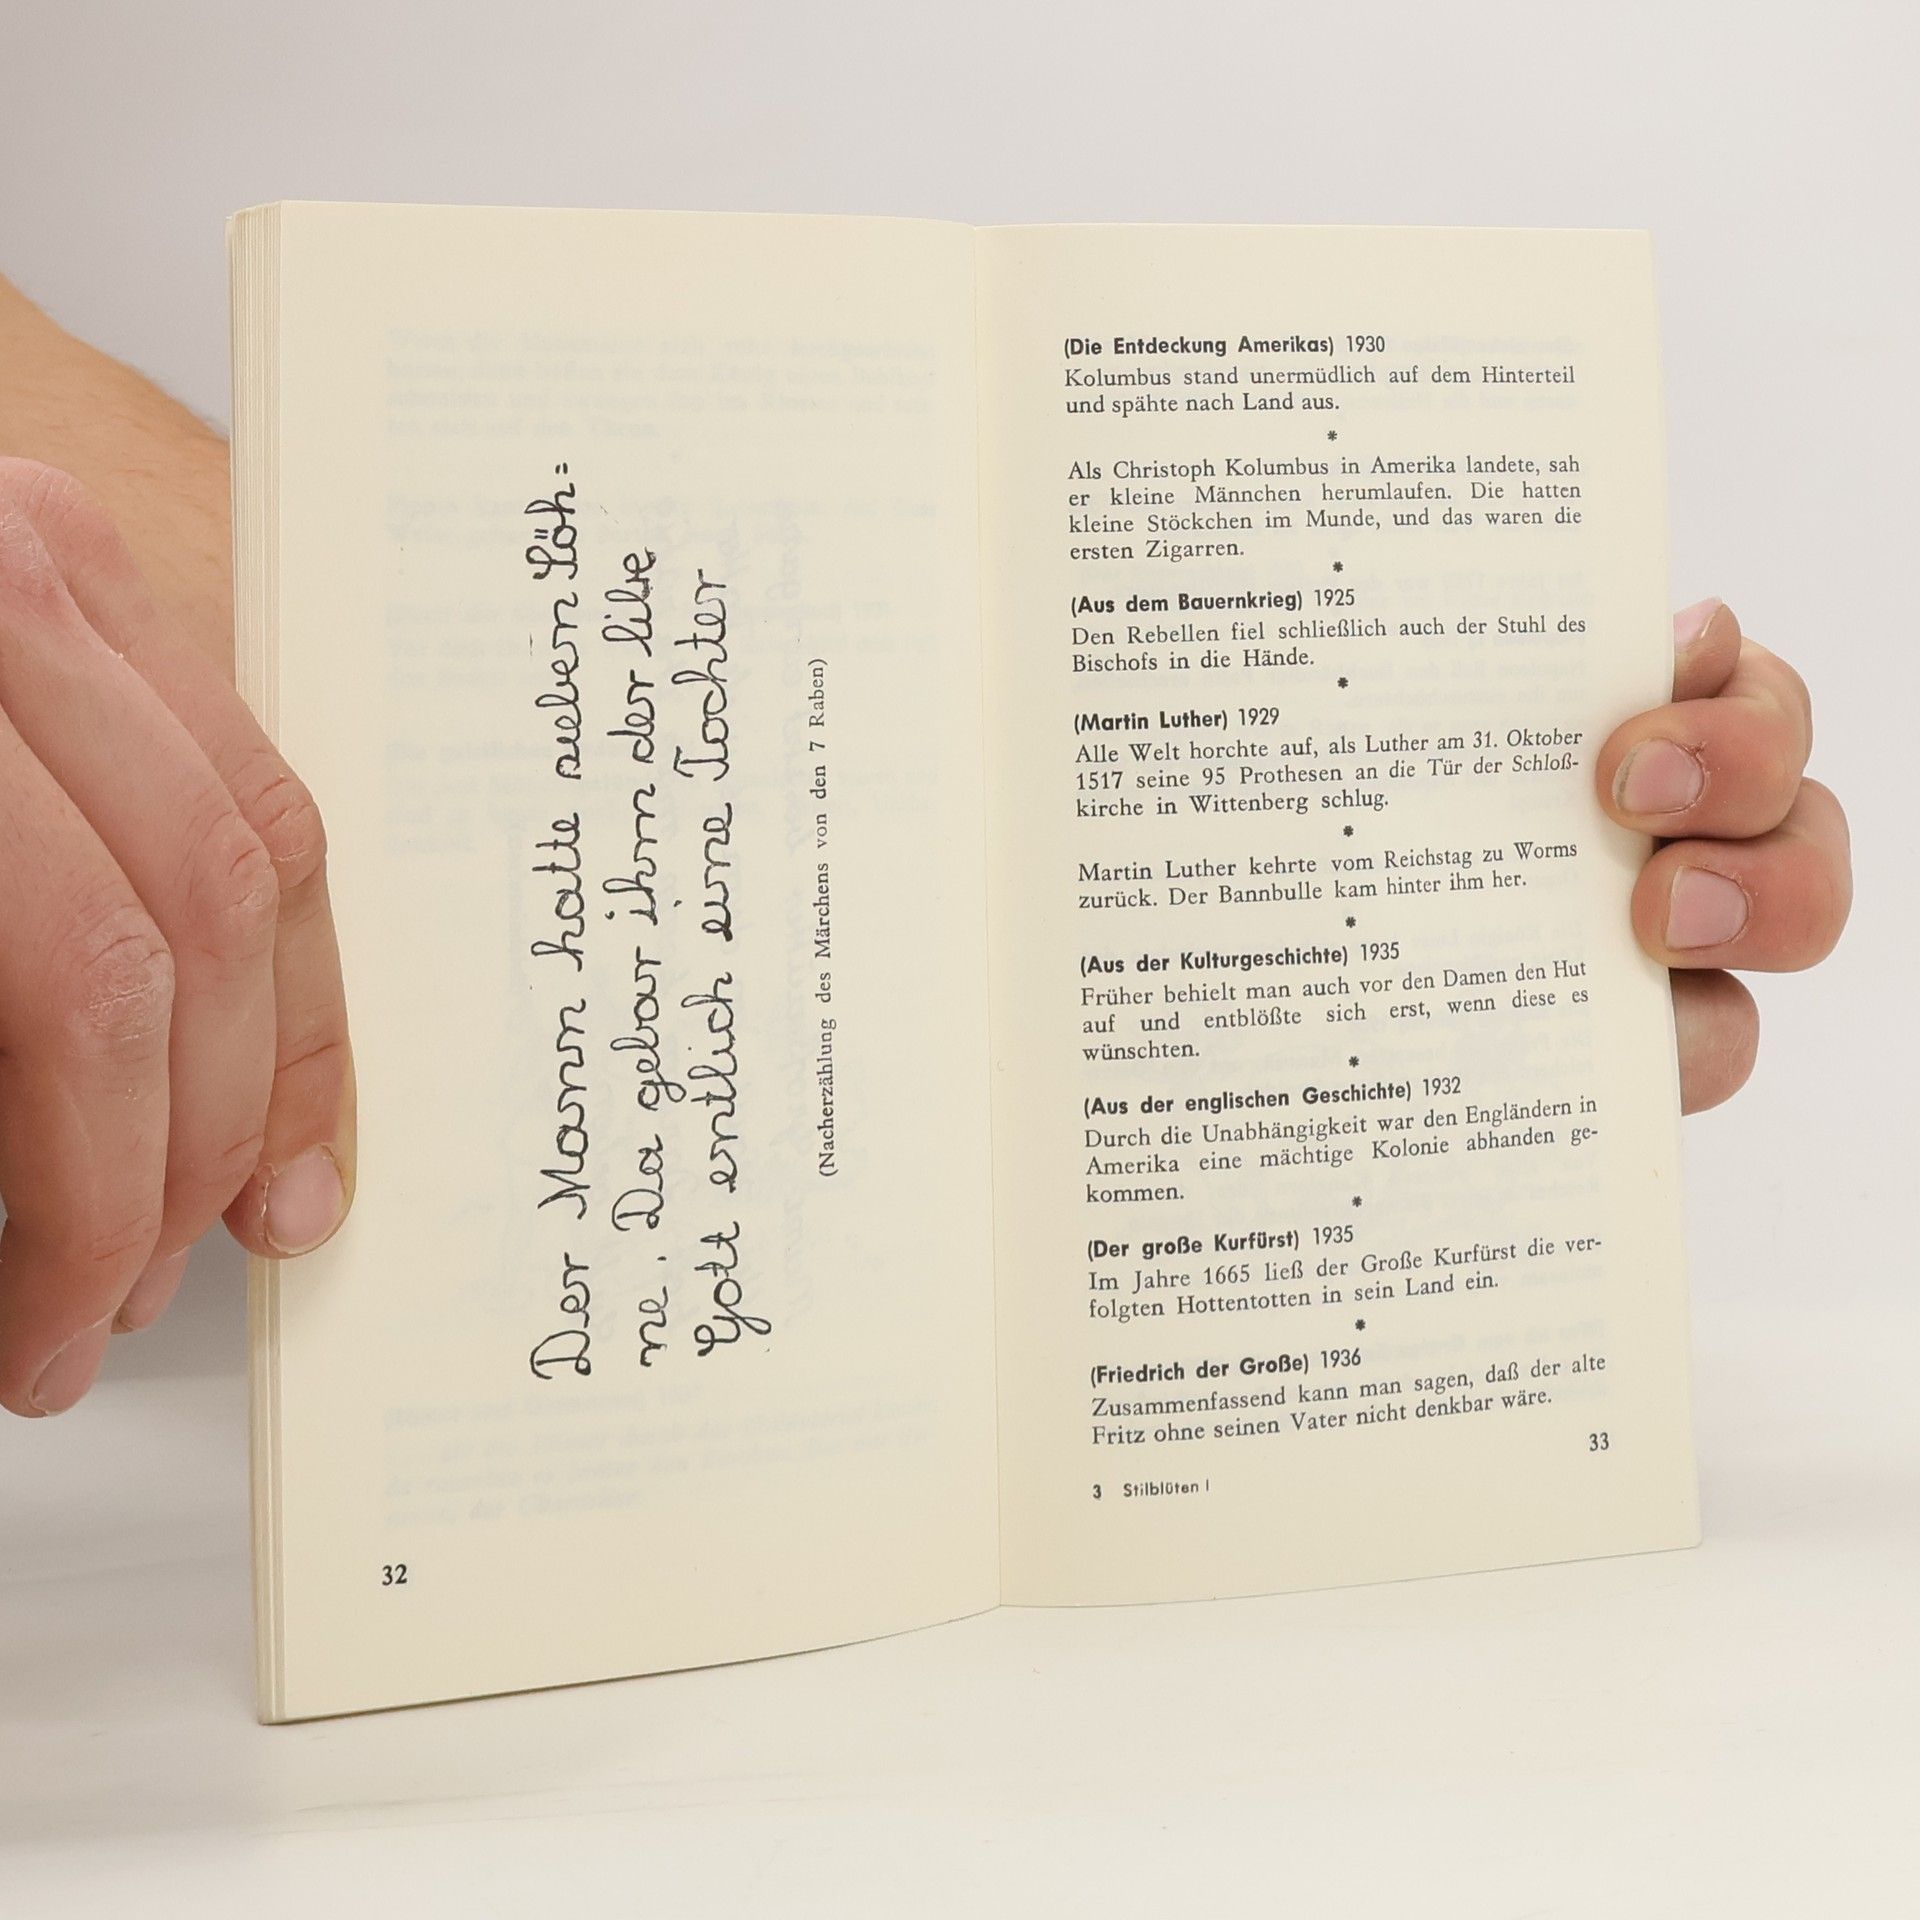 Der Mann hatte siebern Söh=
ne. Da gebar ihm der libe
Gott entlich eine Tochter
(Nacherzählung des Märchens von den 7 Raben)
32
(Die Entdeckung Amerikas) 1930
Kolumbus stand unermüdlich auf dem Hinterteil
und spähte nach Land aus.
*
Als Christoph Kolumbus in Amerika landete, sah
er kleine Männchen herumlaufen. Die hatten
kleine Stöckchen im Munde, und das waren die
ersten Zigarren.
*
(Aus dem Bauernkrieg) 1925
Den Rebellen fiel schließlich auch der Stuhl des
Bischofs in die Hände.
*
(Martin Luther) 1929
Alle Welt horchte auf, als Luther am 31. Oktober
1517 seine 95 Prothesen an die Tür der Schloß-
kirche in Wittenberg schlug.
*
Martin Luther kehrte vom Reichstag zu Worms
zurück. Der Bannbulle kam hinter ihm her.
*
(Aus der Kulturgeschichte) 1935
Früher behielt man auch vor den Damen den Hut
auf und entblößte sich erst, wenn diese es
wünschten.
*
(Aus der englischen Geschichte) 1932
Durch die Unabhängigkeit war den Engländern in
Amerika eine mächtige Kolonie abhanden ge-
kommen.
*
(Der große Kurfürst) 1935
Im Jahre 1665 ließ der Große Kurfürst die ver-
folgten Hottentotten in sein Land ein.
*
(Friedrich der Große) 1936
Zusammenfassend kann man sagen, daß der alte
Fritz ohne seinen Vater nicht denkbar wäre.
33
3 Stilblüten I